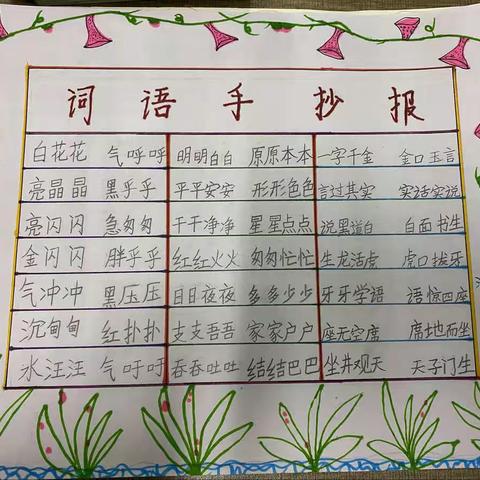 词语手抄报
白花花 气呼呼 明明白白 原原本本 一字千金 金口玉言
亮晶晶 黑乎乎 平平安安 形形色色 言过其实 实话实说
亮闪闪 急匆匆 干干净净 星星点点 说黑道白 白面书生
金闪闪 胖乎乎 红红火火 匆匆忙忙 生龙活虎 虎口拔牙
气冲冲 黑压压 日日夜夜 多多少少 牙牙学语 语惊四座
沉甸甸 红扑扑 支支吾吾 家家户户 座无空席 席地而坐
水汪汪 气吁吁 吞吞吐吐 结结巴巴 坐井观天 天子门生